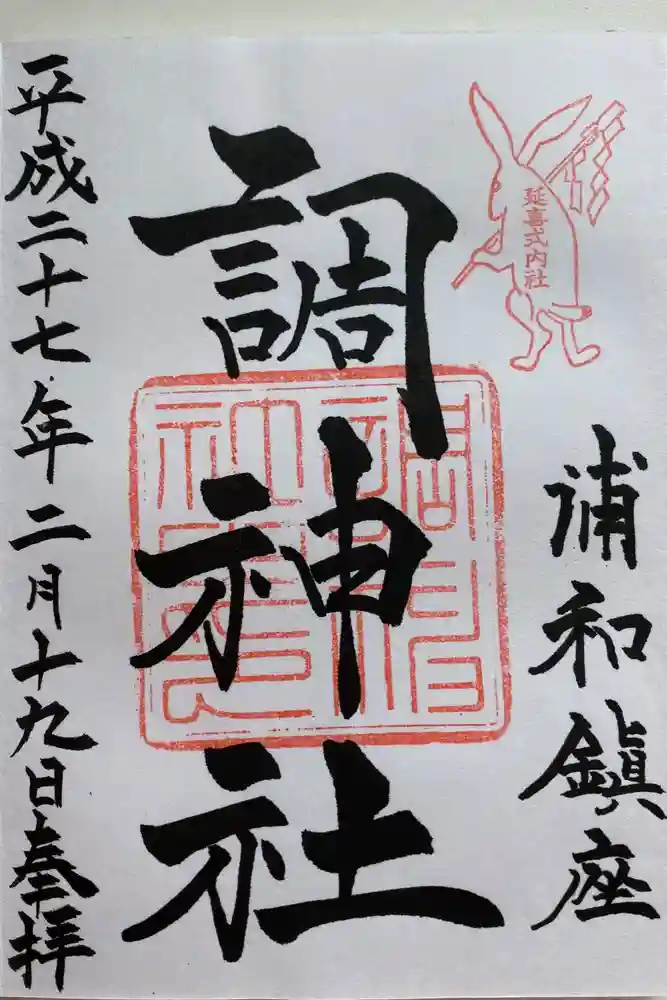 延喜式内社
浦和鎮座
調神社
平成二十七年二月十九日奉拝